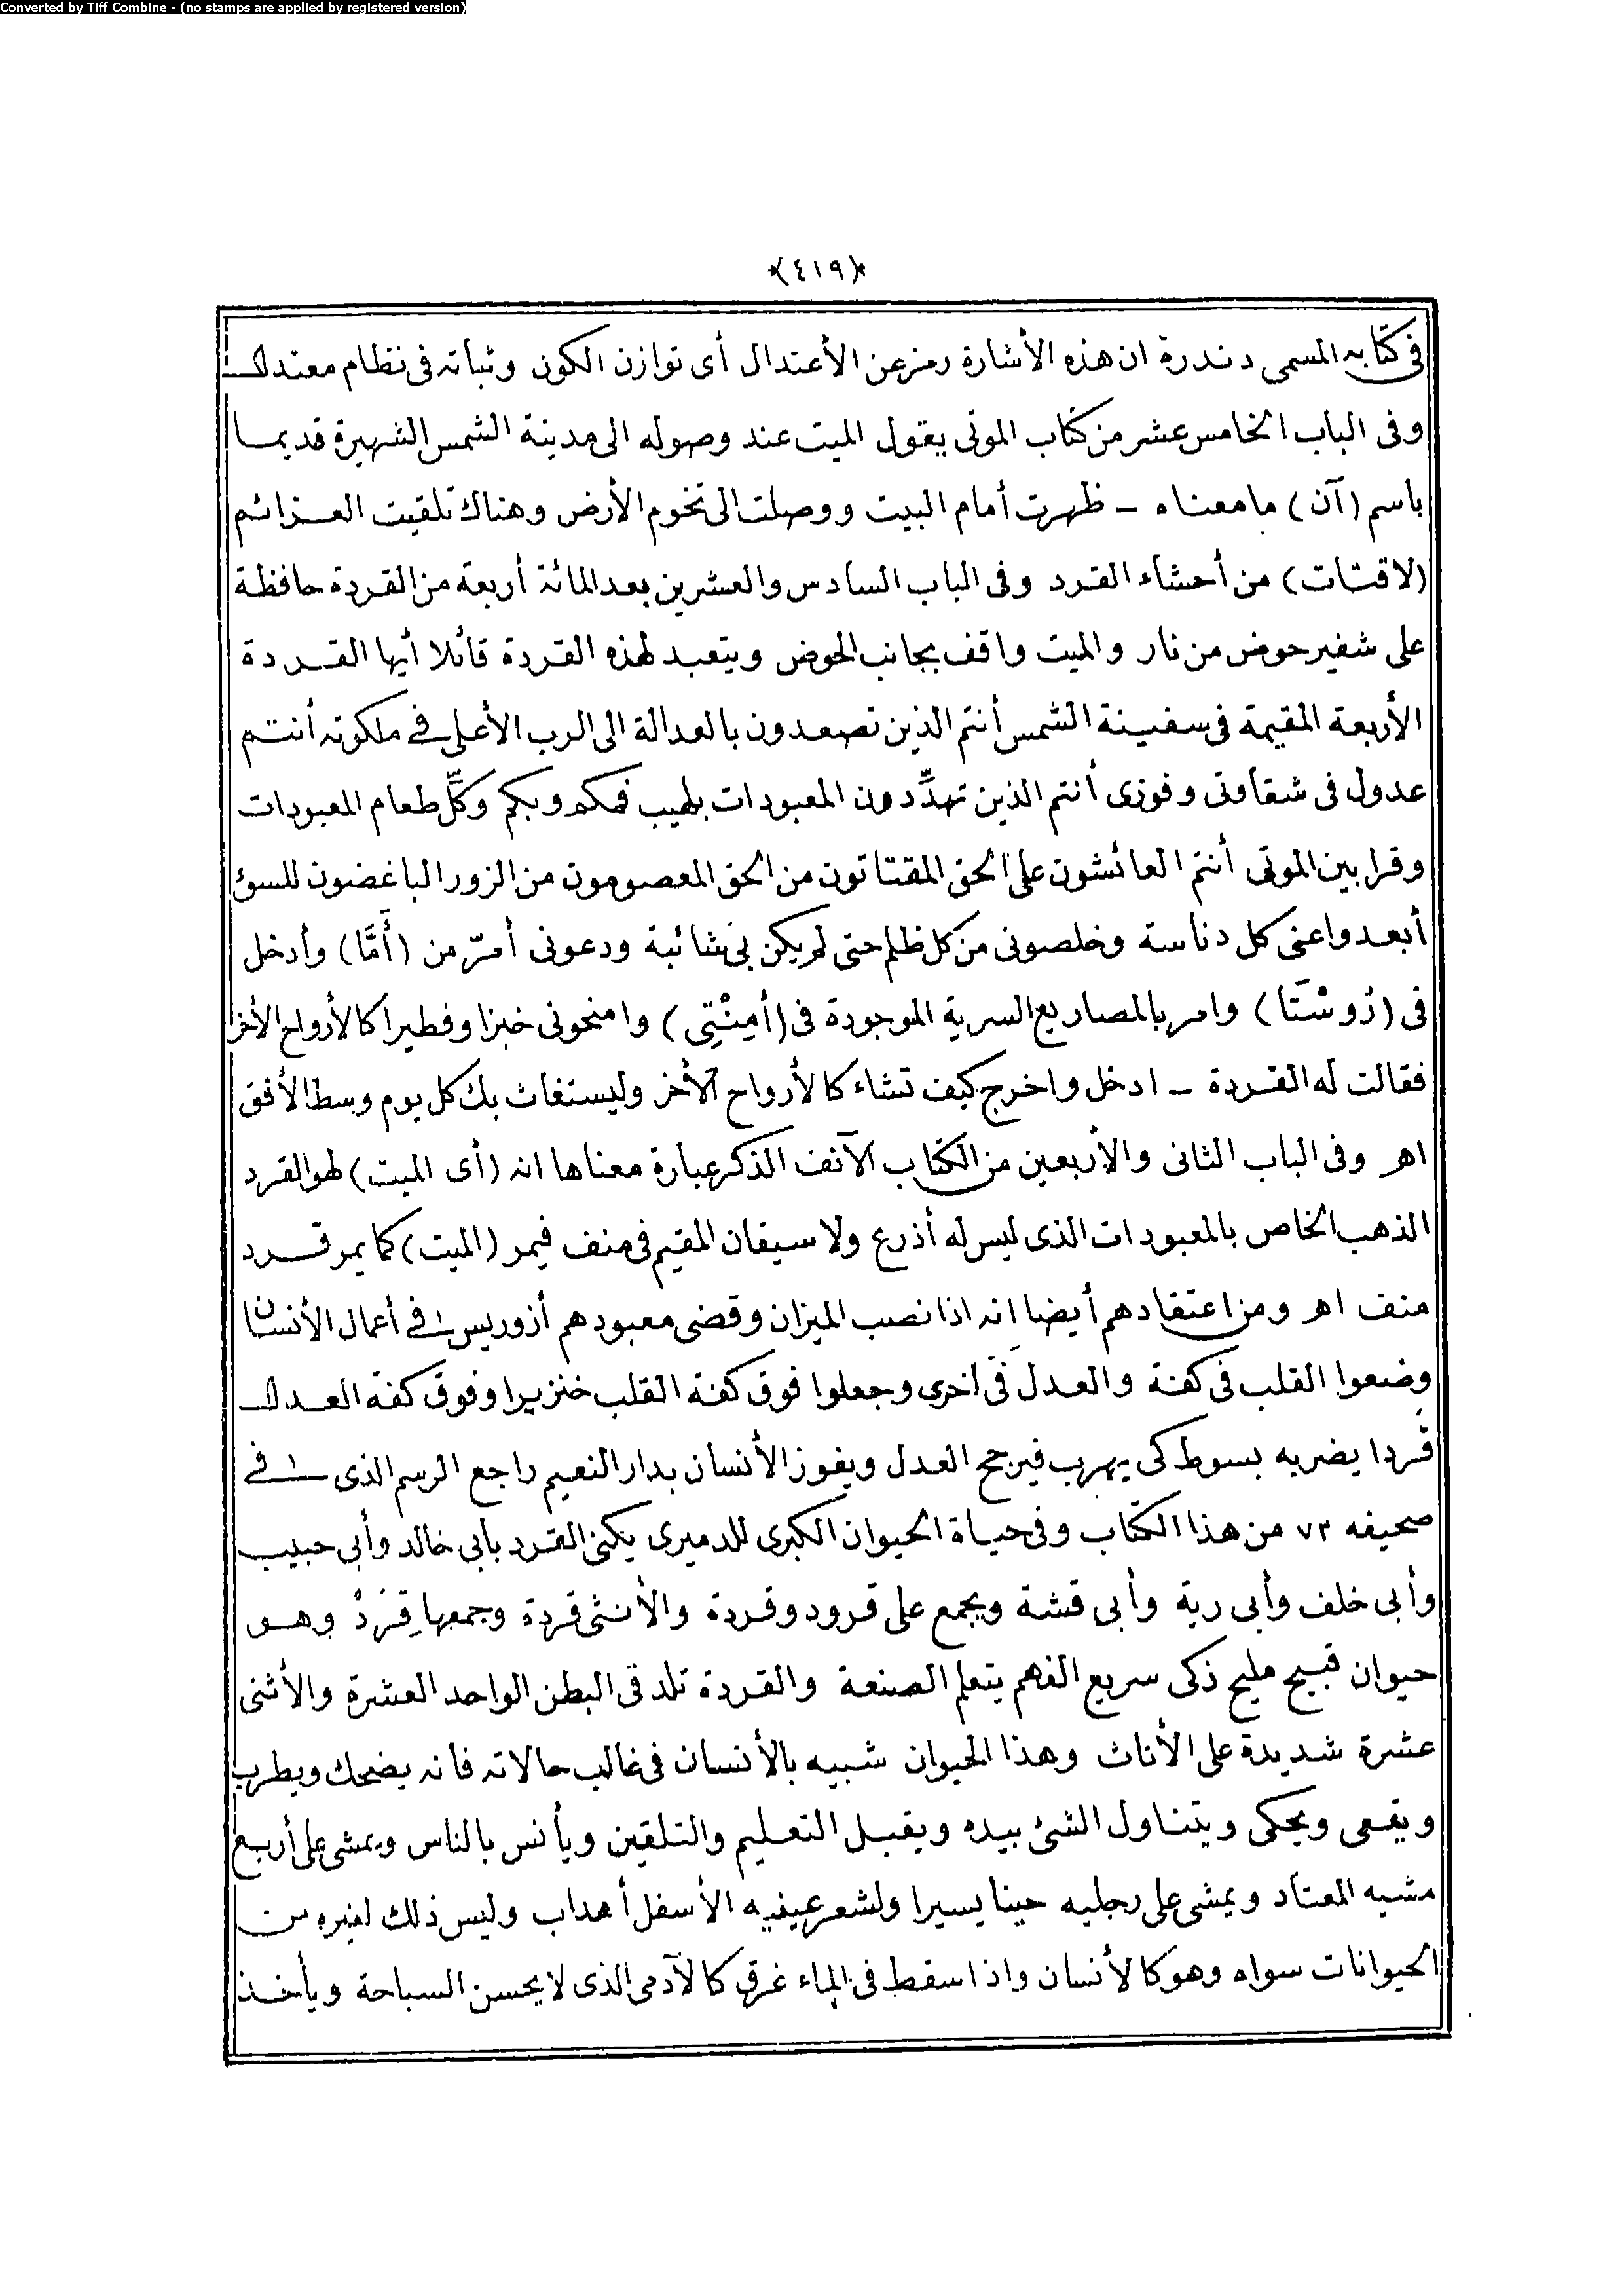 Converted by Tiff Combine - (no stamps are applied by registered version)
*(٤١٩)*
في كتابه المسمى دندرة ان هذه الأشارة رمز عن الأعتدال أى توازن الكون وثباته في نظام معتدل
وفى الباب الخامس عشر من كتاب الموتى يقول الميت عند وصوله الى مدينة الشمس الشهيرة قديما
باسم (آن) ما معناه – ظهرت أمام البيت ووصلت الى تخوم الأرض وهناك تلقيت العزائم
(لاقتات) من أحشاء القرد وفى الباب السادس والعشرين بعد المائة أربعة من القردة حافظة
على شفير حوض من نار والميت واقف بجانب الحوض ويتعبد لهذه القردة قائلا أيها القردة
الأربعة المقيمة فى سفينة الشمس أنتم الذين تصعدون بالعدالة الى الرب الأعلى في ملكوته أنتم
عدول فى شقاوتى وفوزى أنتم الذين تهدّدون المعبودات بلهيب فمكم وبكم وكلّ طعام المعبودات
وقرابين الموتى أنتم العائشون على الحق المقتاتون من الحق المعصومون من الزور الباغضون للسوء
أبعدوا عنى كل دناسة وخلصونى من كل ظلم حتى لم يكن بى شائبة ودعونى أمرّ من (أَمَّا) وأدخل
فى (رُوسْتَا) وامر بالمصاريع السرية الموجودة فى (أمِنْتِى) وامنحونى خبزا وفطيرا كالأرواح الأخر
فقالت له القردة – ادخل واخرج كيف تشاء كالأرواح الأخر وليستغاث بك كل يوم وسط الأفق
اهر وفى الباب الثانى والأربعين من الكتاب الآنف الذكر عبارة معناها انه (أى الميت) لهو القرد
الذهب الخاص بالمعبودات الذى ليس له أذرع ولا سيقان المقيم فى منف فيمر (الميت) كما يمر قرد
منف اهر ومن اعتقادهم أيضا انه اذا نصب الميزان وقضى معبودهم أزوريس في أعمال الأنسان
وضعوا القلب فى كفة والعدل فى اخرى وجعلوا فوق كفة القلب خنزيرا وفوق كفة العدل
قردا يضربه بسوط كى يهرب فيرجح العدل ويفوز الأنسان بدار النعيم راجع الرسم الذى في
صحيفه ٧٣ من هذا الكتاب وفى حياة الحيوان الكبرى للدميرى يكنى القرد بأبى خالد وأبى حبيب
وأبى خلف وأبى رية وأبى قشة ويجمع على قرود وقردة والأنثى قردة وجمعها قِرَدْ وهو
حيوان قبيح مليح ذكى سريع الفهم يتعلم الصنعة والقردة تلد فى البطن الواحد العشرة والأثنى
عشرة شديدة على الأناث وهذا الحيوان شبيه بالأنسان فى غالب حالاته فانه يضحك ويطرب
ويقعى ويحكى ويتناول الشئ بيده ويقبل التعليم والتلقين ويأنس بالناس ويمشى على أربع
مشيه المعتاد ويمشى على رجليه حينا يسيرا ولشعر عينيه الأسفل أهداب وليس ذلك لغيره من
الحيوانات سواه وهو كالأنسان واذا سقط فى الماء غرق كالآدمى الذى لا يحسن السباحة ويأخذ